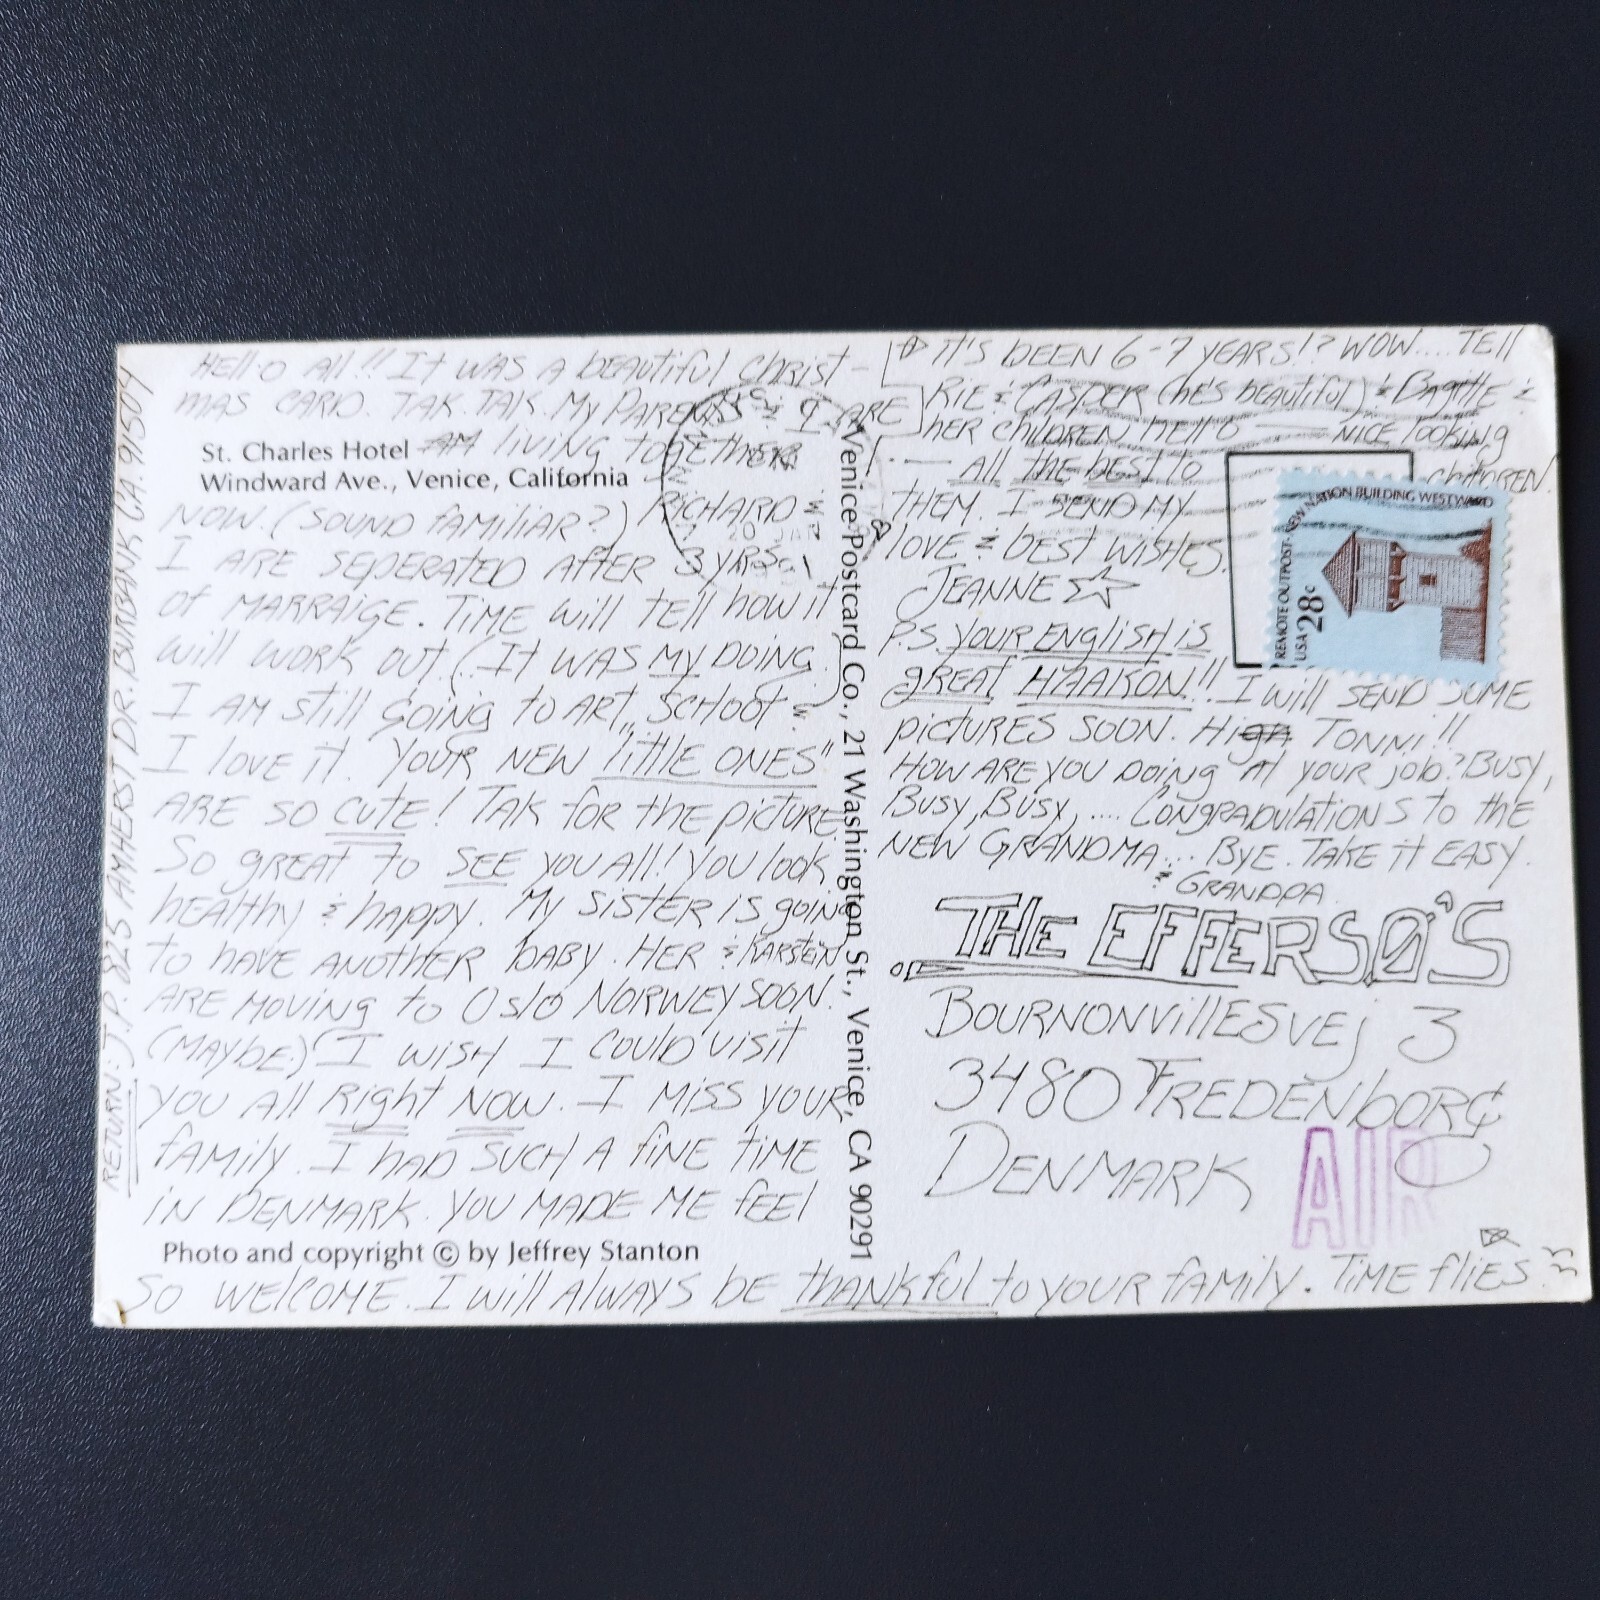 HELLO All!! It WAS A beautiful Christ-
MAS CARD. TAK. TAK. My PARENTS & I ARE
St. Charles Hotel
Windward Ave., Venice, California
AM living together
NOW (SOUND fAMiliAR?) RICHARD &
I ARE SEPERATED AFTER 3 YRS.
of MARRAIGE. Time will tell how it
will WORK out. (It WAS MY DOING.)
I AM still going to ART "SCHOOL" &
I love it. YOUR NEW "little ONES"
ARE SO CUTE! TAK for the picture.
So GREAT to SEE you All! You look
healthy & happy. My SISTER is going
to HAVE ANOTHER baby. HER & KARSTEN
ARE MOVING to Oslo NORWEY SOON.
(MAYBE.) I WISH I COULD visit
you All Right NOW. I MISS YOUR
family. I HAD SUCH A fiNE TiME
iN DENMARK. YOU MADE ME fEEl
Photo and copyright © by Jeffrey Stanton
So WELCOME. I will AlWAYS BE thANKful to YOUR fAMily. TiME fliES
RETURN: J.P. 825 AMHERST DR. BURBANK CA. 91504
Venice Postcard Co., 21 Washington St., Venice, CA 90291
it's BEEN 6-7 YEARS!? WOW.... TEll
RiE & CASPER (he's beautiful) & &
her children HELLO — NICE looking
children.
— All the best to
THEM. I SEND MY
love & best wishes.
JEANNE
P.S. YOUR ENGlish is
gREAT HAAKON!! I will SEND SOME
pictuRES SOON. Hi TONNi!!
HOW ARE YOU DOiNg At your job? Busy,
Busy, Busy, .... CONGRADulATiONS to the
NEW GRANDMA... BYE. TAKE it EASY.
& GRANDPA.
THE EFFERSØ'S
BOURNONVillESvEj 3
3480 FREDENborG
DENMARK
AIR
REMOTE OUTPOST · NEW NATION BUILDING WESTWARD
USA 28c
20 JAN